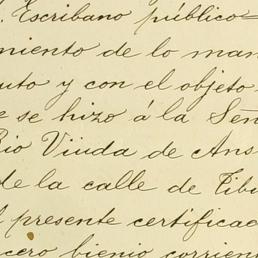 . Escribano público=
miento de lo man
uto y con el objeto
e se hizo á la Señ
Rio Viuda de Ans
de la calle de Tibu
l presente certificad
cero bienio corrien